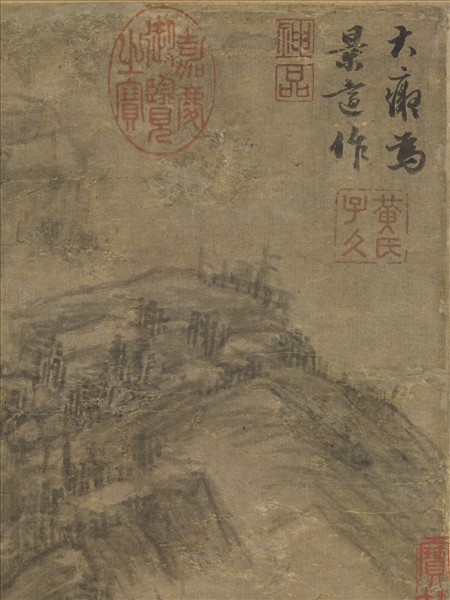 大癡為
景遠作
黃氏
子久
神品
嘉慶
御覽
之寶
寶